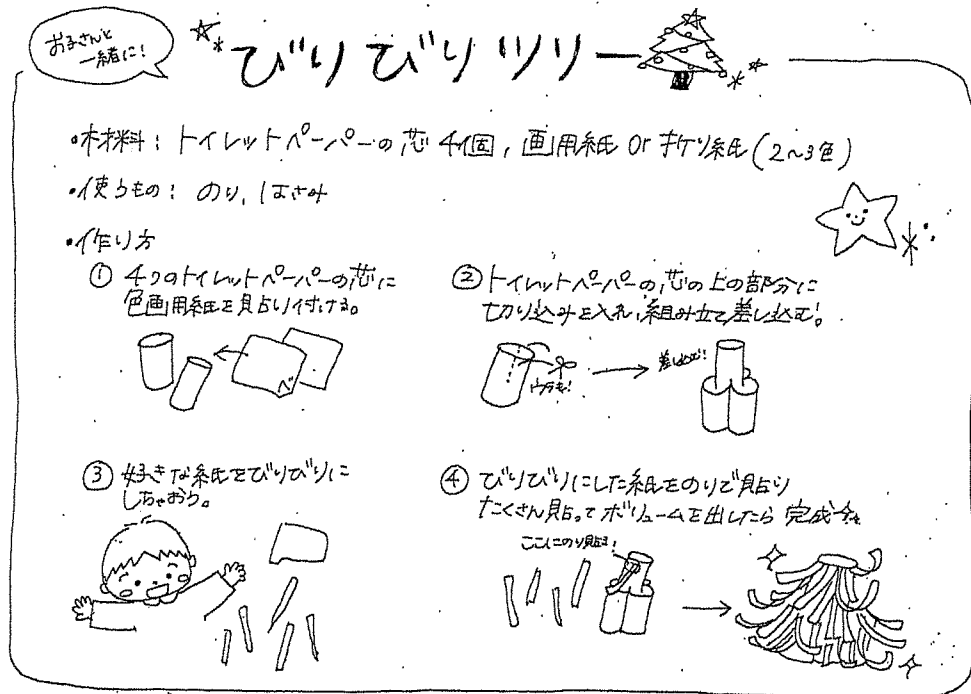 お子さんと
一緒に!
びりびりツリー
・材料: トイレットペーパーの芯 4個, 画用紙 or 折り紙(2~3色)
・使うもの: のり, はさみ
・作り方
① 4つのトイレットペーパーの芯に
色画用紙を貼り付ける。
② トイレットペーパーの芯の上の部分に
切り込みを入れ、組み立て差し込む!。
ペ
ウラも!
差し込む!
③ 好きな紙をびりびりに
しちゃおう。
④ びりびりにした紙をのりで貼り
たくさん貼ってボリュームを出したら 完成
ここにのり貼る!